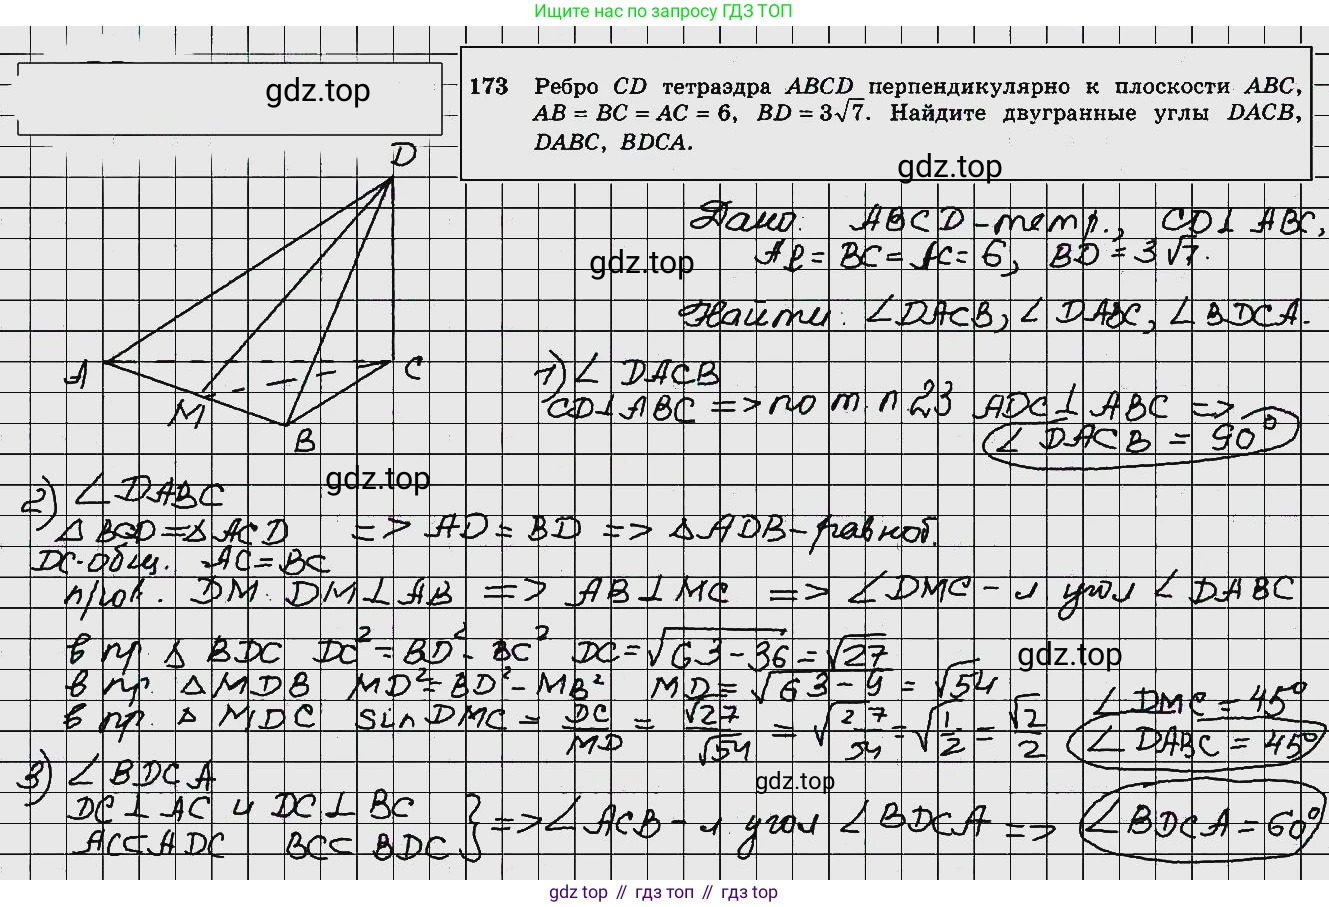 Ищите нас по запросу ГДЗ ТОП
gdz.top
173 Ребро CD тетраэдра ABCD перпендикулярно к плоскости ABC,
AB = BC = AC = 6, BD = 3√7. Найдите двугранные углы DACB,
DABC, BDCA.
gdz.top
D
A
M
B
C
Дано: ABCD-тетр., CD⊥ABC,
AB = BC = AC = 6, BD = 3√7.
gdz.top
Найти: ∠DACB, ∠DABC, ∠BDCA.
1) ∠ DACB
CD⊥ABC => по т. п 23 ADC⊥ABC =>
∠DACB = 90°
gdz.top
2) ∠DABC
△BCD = △ACD => AD = BD => △ADB-равноб.
DC-общ. AC = BC
пров. DM: DM⊥AB => AB⊥MC => ∠DMC - л угол ∠DABC
в пр △ BDC DC² = BD² - BC² DC = √63-36 = √27
gdz.top
в пр. △ MDB MD² = BD² - MB² MD = √63-9 = √54
∠DMC = 45°
в пр. △ MDC sin DMC = DC/MD = √27/√54 = √27/54 = √1/2 = √2/2
∠DABC = 45°
3) ∠BDCA
gdz.top
DC⊥AC и DC⊥BC
AC⊂ADC BC⊂BDC } => ∠ACB - л угол ∠BDCA => ∠BDCA = 60°
gdz top // гдз топ // gdz top